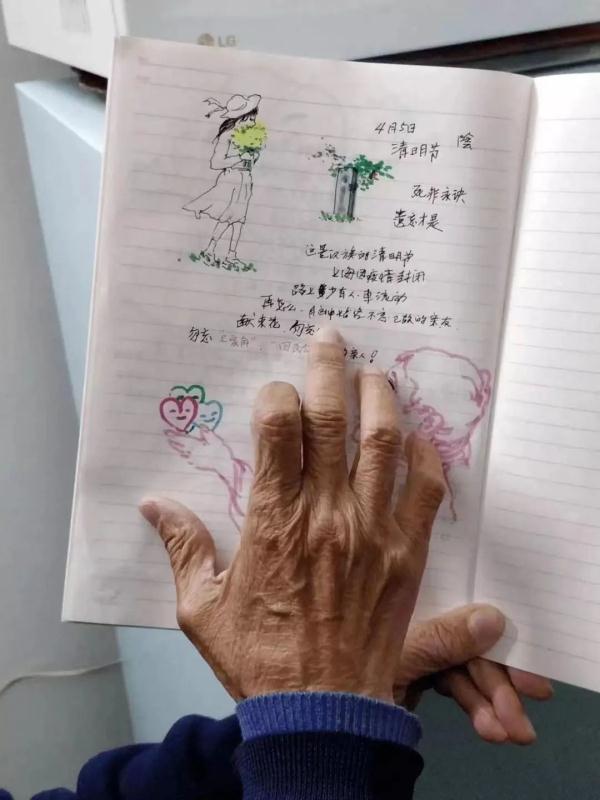 LG
4月5日
清明节 陰
死非永诀
遗忘才是
这是汉族的清明节
上海因疫情封闭
路上少有人、车流动
再怎么,心中始终不忘已故的亲友
献束花,勿忘
勿忘
亲人!